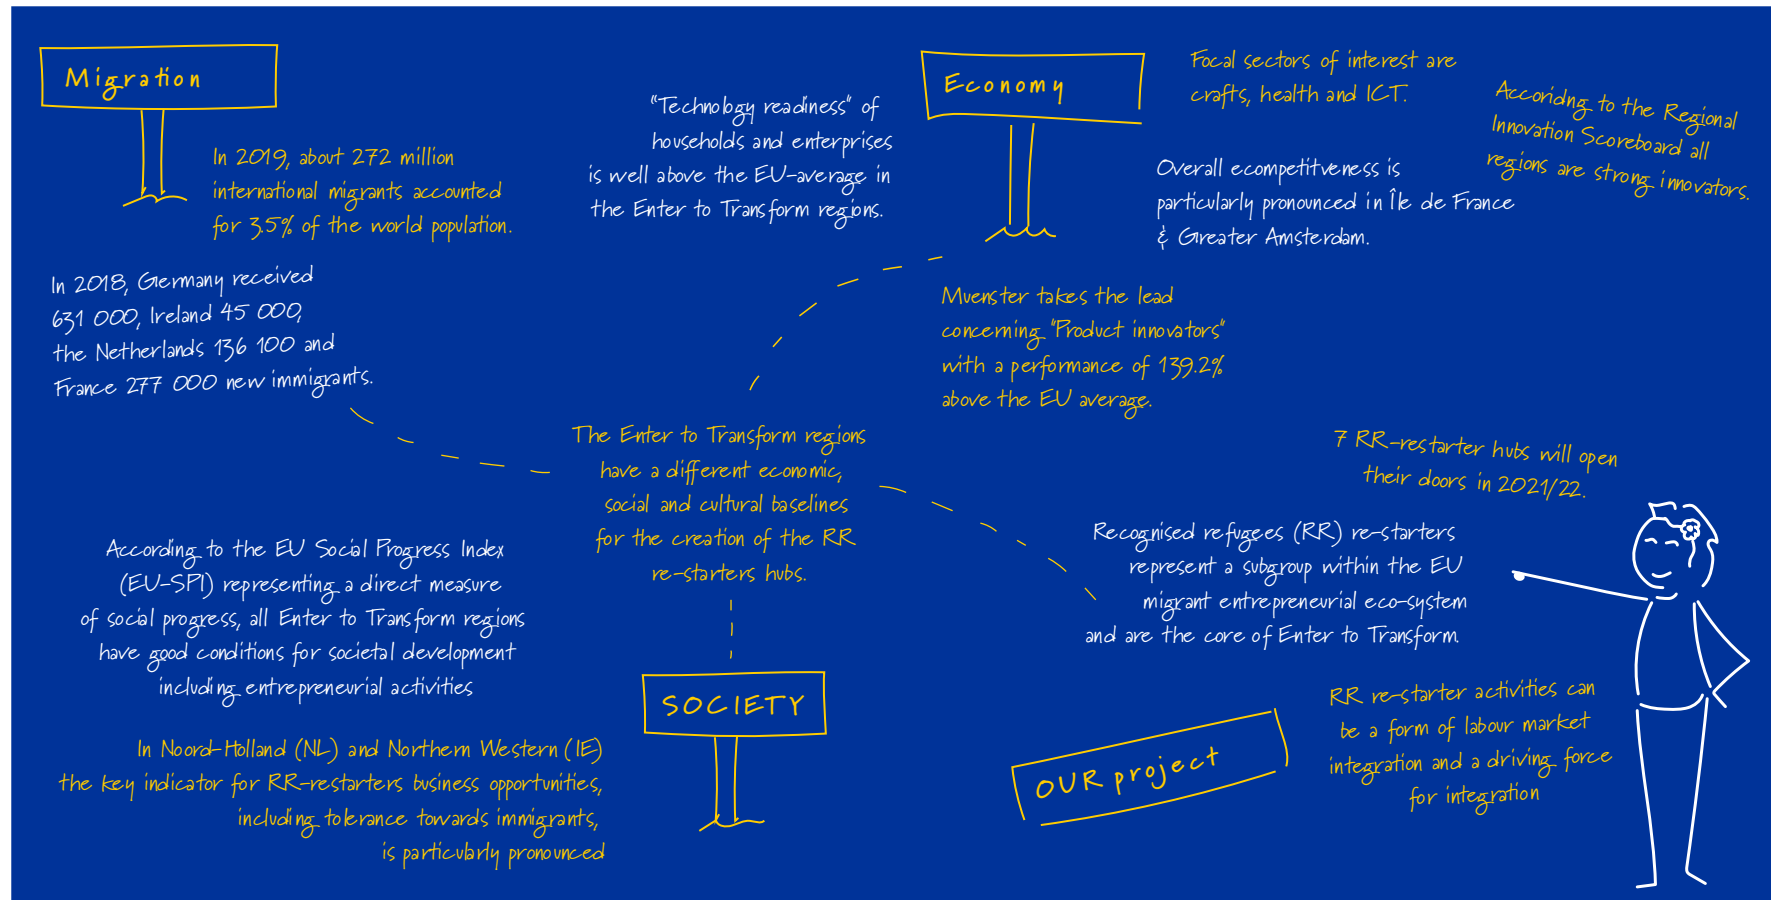 Migration
In 2019, about 272 million
international migrants accounted
for 3.5% of the world population.
In 2018, Germany received
631 000, Ireland 45 000,
the Netherlands 136 100 and
France 277 000 new immigrants.
"Technology readiness" of
households and enterprises
is well above the EU-average in
the Enter to Transform regions.
Economy
Focal sectors of interest are
crafts, health and ICT.
Accoridng to the Regional
Innovation Scoreboard all
regions are strong innovators.
Overall ecompetitveness is
particularly pronounced in Île de France
& Greater Amsterdam.
Muenster takes the lead
concerning "Product innovators"
with a performance of 139.2%
above the EU average.
The Enter to Transform regions
have a different economic,
social and cultural baselines
for the creation of the RR
re-starters hubs.
7 RR-restarter hubs will open
their doors in 2021/22.
Recognised refugees (RR) re-starters
represent a subgroup within the EU
migrant entrepreneurial eco-system
and are the core of Enter to Transform.
According to the EU Social Progress Index
(EU-SPI) representing a direct measure
of social progress, all Enter to Transform regions
have good conditions for societal development
including entrepreneurial activities
SOCIETY
In Noord-Holland (NL) and Northern Western (IE)
the key indicator for RR-restarters business opportunities,
including tolerance towards immigrants,
is particularly pronounced
OUR project
RR re-starter activities can
be a form of labour market
integration and a driving force
for integration